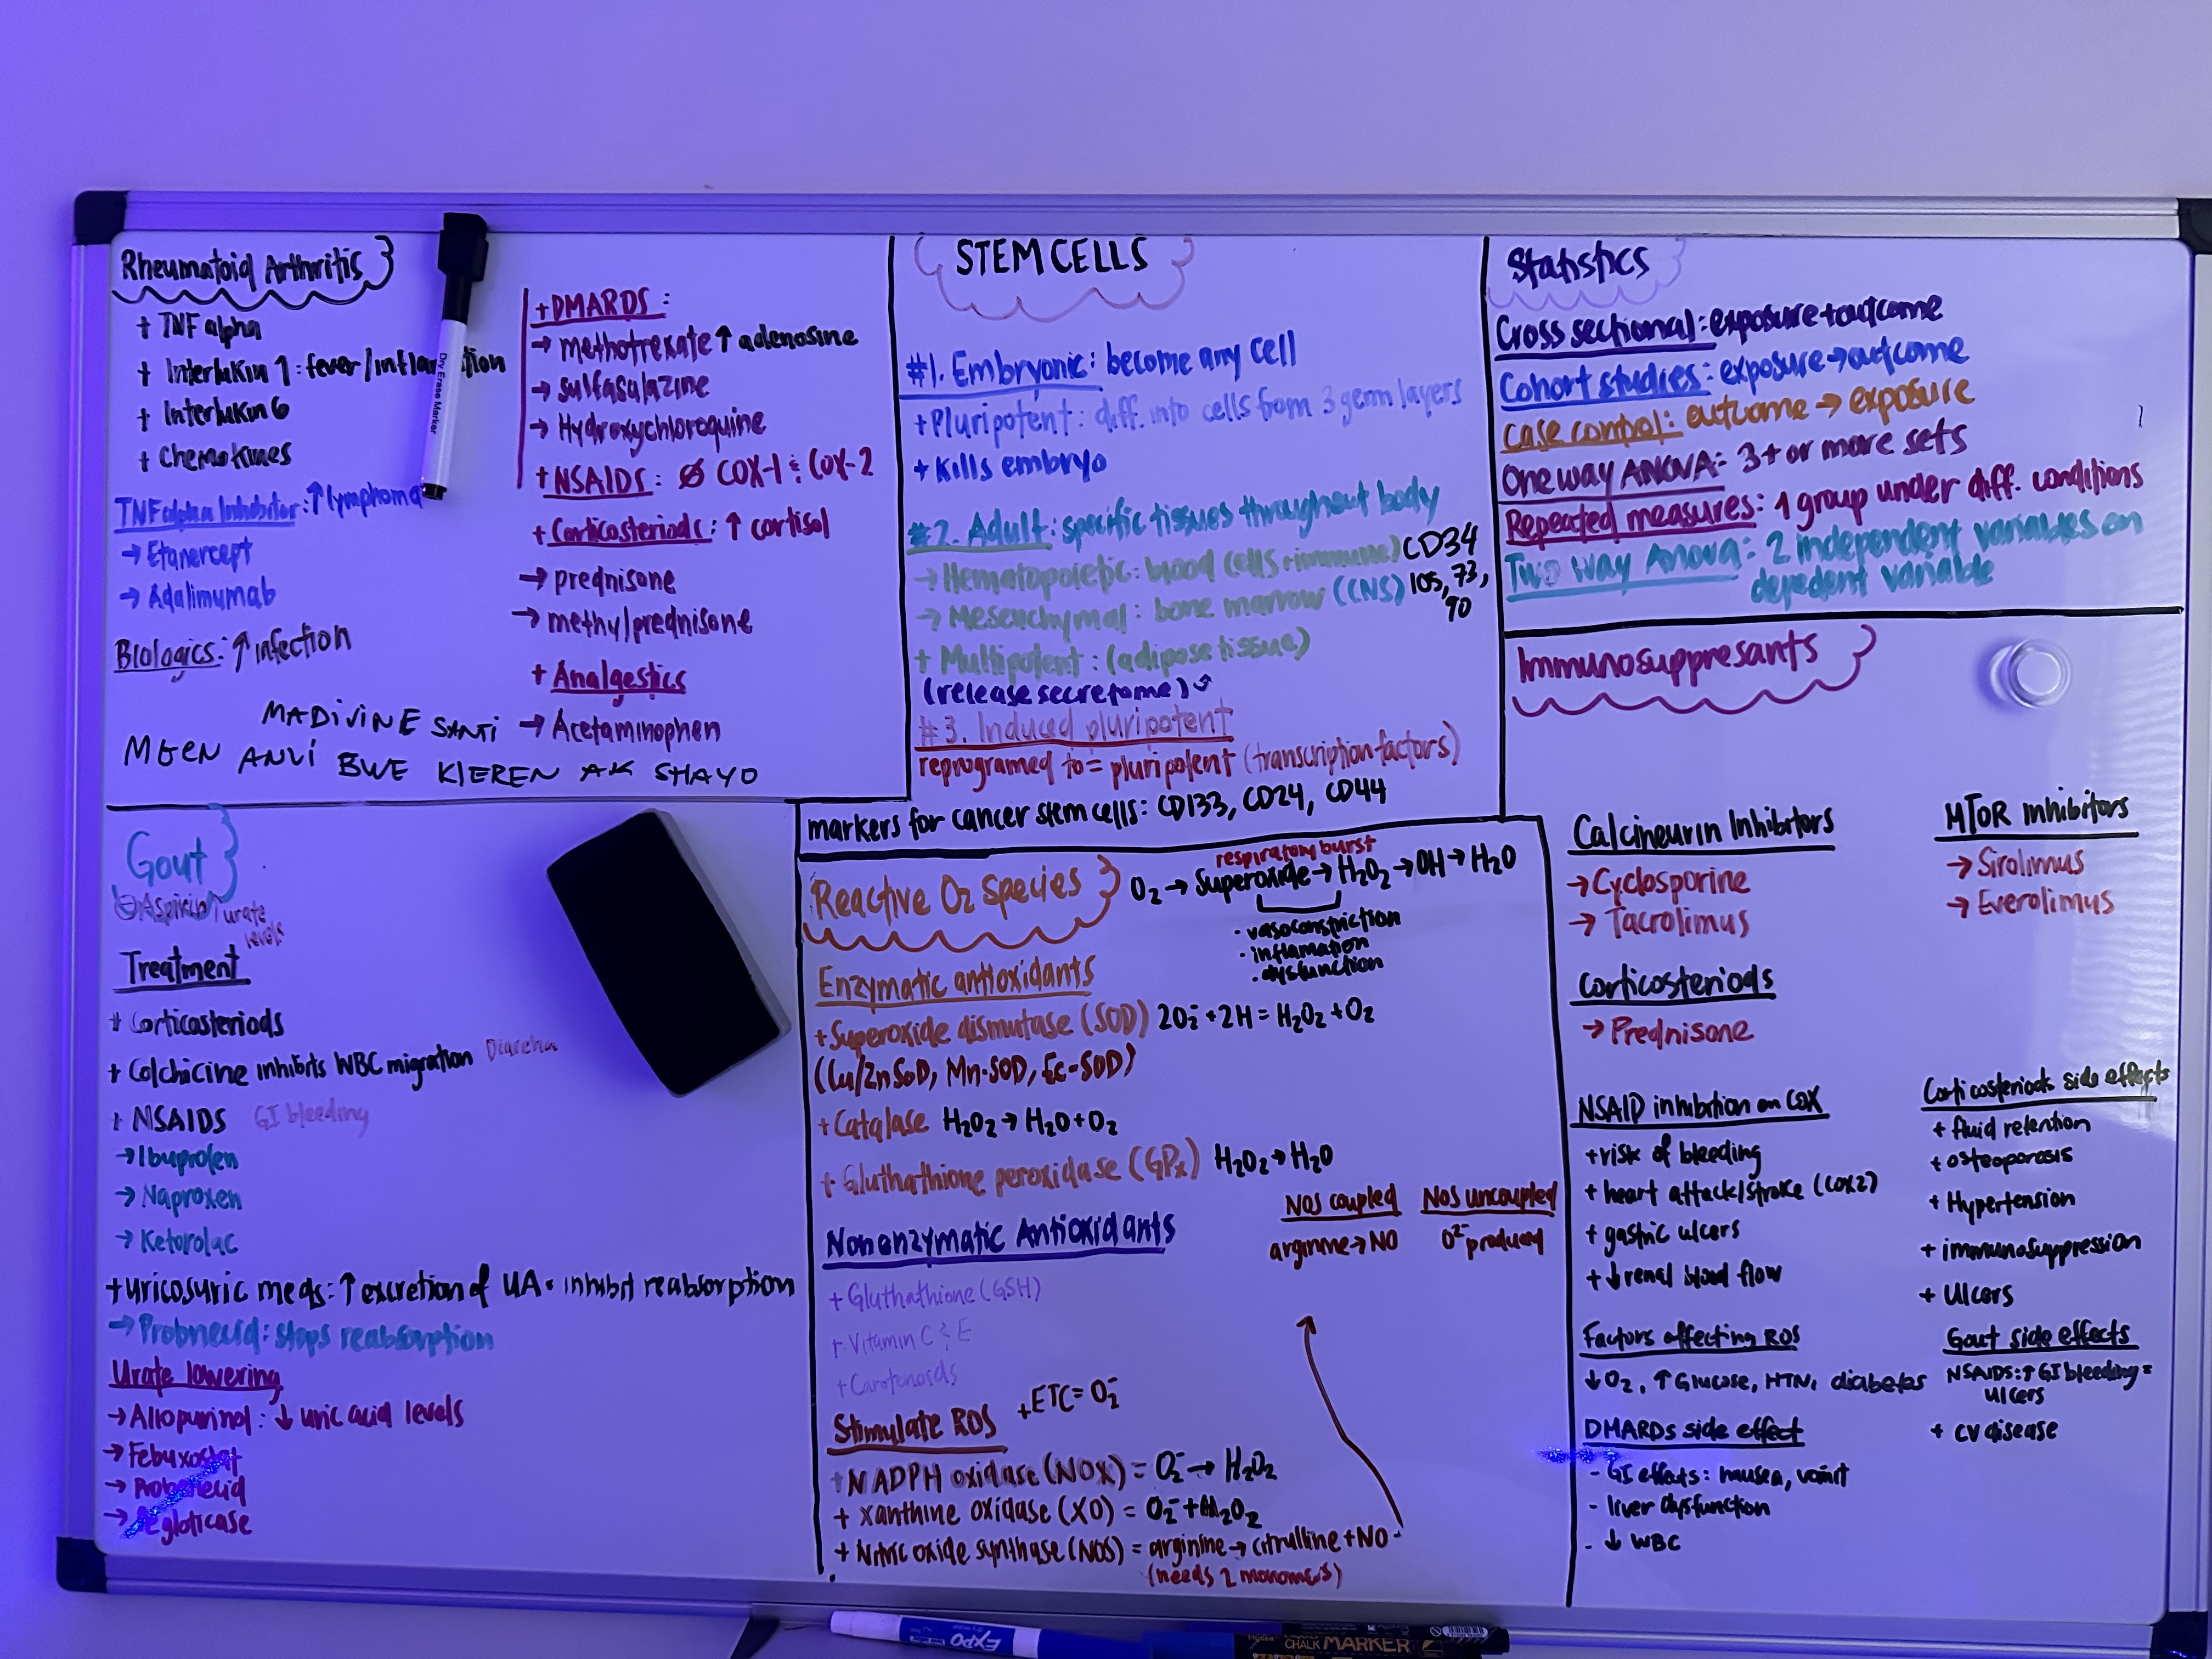 Rheumatoid Arthritis
+ TNF alpha
+ Interlukin 1: fever/inflammation
+ Interlukin 6
+ Chemokines
TNF alpha Inhibitor: ↑ lymphoma
→ Etanercept
→ Adalimumab
Biologics: ↑ infection
MADIVINE SANTI
MGEN ANVI BWE KIEREN AK SHAYO
Dry Erase Marker
+ DMARDS:
→ methotrexate ↑ adenosine
→ sulfasalazine
→ Hydroxychloroquine
+ NSAIDS: Ø COX-1 & COX-2
+ Corticosteriods: ↑ cortisol
→ prednisone
→ methylprednisone
+ Analgestics
→ Acetaminophen
STEM CELLS
#1. Embryonic: become any cell
+ Pluripotent: diff. into cells from 3 germ layers
+ Kills embryo
#2. Adult: specific tissues throughout body
→ Hematopoietic: blood cells + immune) CD34
→ Mesenchymal: bone marrow (CNS) 105, 73, 90
+ Multipotent: (adipose tissue)
(release secretome)
#3. Induced pluripotent
reprogramed to = pluripotent (transcription factors)
markers for cancer stem cells: CD133, CD24, CD44
Statistics
Cross sectional: exposure + outcome
Cohort studies: exposure → outcome
Case control: outcome → exposure
One way ANOVA: 3+ or more sets
Repeated measures: 1 group under diff. conditions
Two way Anova: 2 independent variables on
depedent variable
Gout
Aspirin ↑ urate
levels
Treatment
+ Corticosteriods
+ Colchicine inhibits WBC migration Diareha
+ NSAIDS GI bleeding
→ Ibuprofen
→ Naproxen
→ Ketorolac
+ uricosuric meds: ↑ excretion of UA • inhibit reabsorption
→ Probnecid: stops reabsorption
Urate lowering
→ Allopurinol: ↓ uric acid levels
→ Febuxostat
→ Probenecid
→ Pegloticase
Reactive O₂ Species
respiratory burst
O₂ → Superoxide → H₂O₂ → OH → H₂O
· vasoconstriction
· inflamation
· dysfunction
Enzymatic antioxidants
+ Superoxide dismutase (SOD) 2O₂⁻ + 2H = H₂O₂ + O₂
(Cu/Zn SOD, Mn-SOD, Ec-SOD)
+ Catalase H₂O₂ → H₂O + O₂
+ Gluthathione peroxidase (GPx) H₂O₂ → H₂O
NOS coupled
arginine → NO
NOS uncoupled
O²⁻ produced
Nonenzymatic Antioxidants
+ Gluthathione (GSH)
+ Vitamin C & E
+ Carotenoids
Stimulate ROS + ETC = O₂⁻
+ NADPH oxidase (NOX) = O₂⁻ → H₂O₂
+ xanthine oxidase (XO) = O₂⁻ + H₂O₂
+ Nitric oxide synthase (NOS) = arginine → citrulline + NO
(needs 2 monomers)
Immunosuppresants
Calcineurin Inhibitors
→ Cyclosporine
→ Tacrolimus
MTOR Inhibitors
→ Sirolimus
→ Everolimus
Corticosteriods
→ Prednisone
NSAID inhibition on COX
+ risk of bleeding
+ heart attack/stroke (COX2)
+ gastric ulcers
+ ↓ renal blood flow
Corticosteriods side effects
+ fluid retention
+ osteoporosis
+ Hypertension
+ immunosuppression
+ Ulcers
Factors affecting ROS
↓ O₂, ↑ Glucose, HTN, diabetes
Gout side effects
NSAIDS: ↑ GI bleeding =
ulcers
+ CV disease
DMARDs side effect
- GI effects: nausea, vomit
- liver dysfunction
- ↓ WBC
EXPO
CHALK MARKER